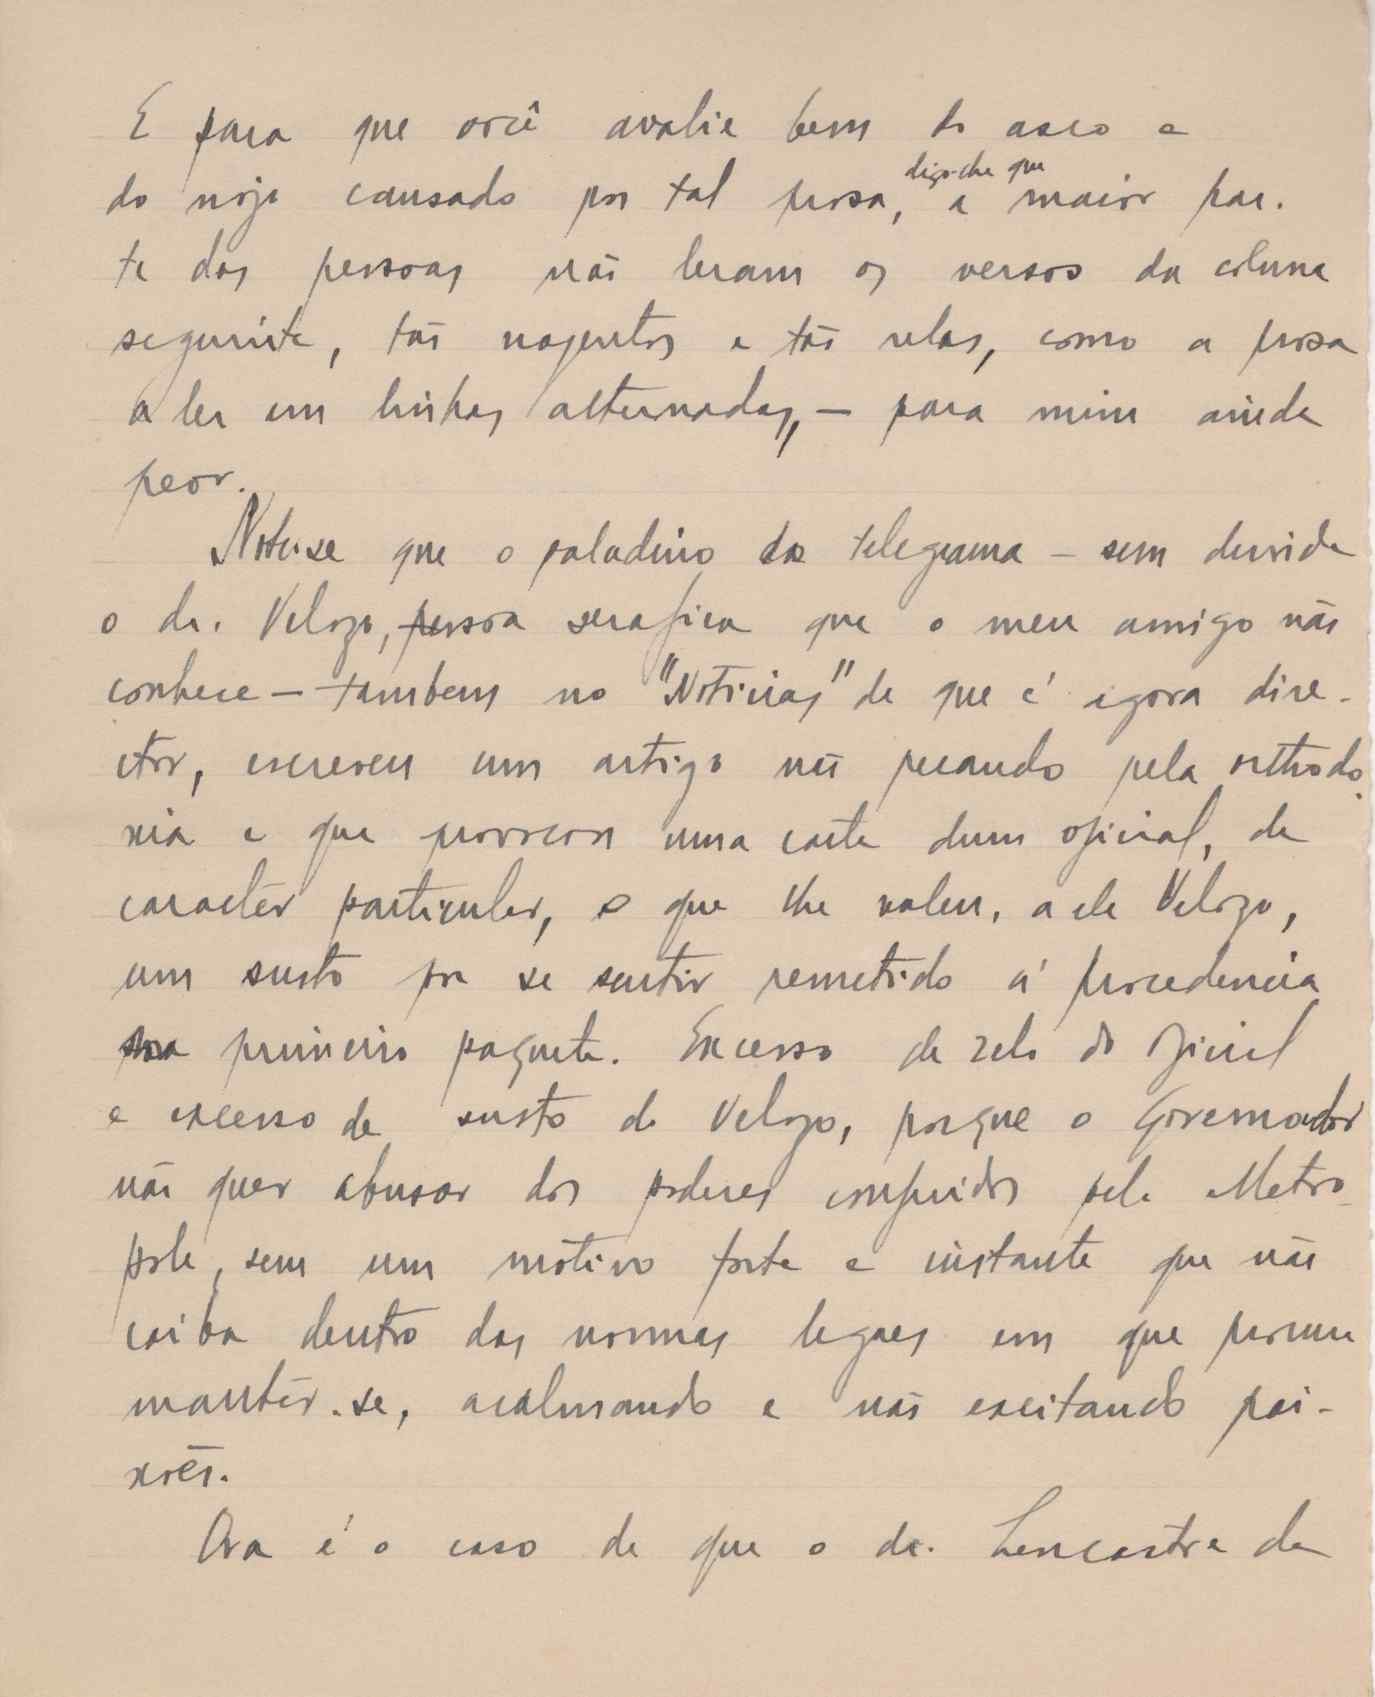 E para que você avalie bem do asco e
do nojo causado por tal prosa, digo-lhe que a maior par-
te das pessoas não leram os versos da coluna
seguinte, tão nojentos e tão reles, como a prosa
a ler em linhas alternadas, — para mim ainda
peor.
Note-se que o paladino do telegrama — sem duvida
o dr. Velozo, pessoa serafica que o meu amigo não
conhece — tambem no "Noticias" de que é agora dire-
ctor, escreveu um artigo não pecando pela orthodo-
xia e que provocou uma carta dum oficial, de
caractér particular, o que lhe valeu, a ele Velozo,
um susto por se sentir remetido á procedencia
no primeiro paquete. Excesso de zelo do oficial
e excesso de susto do Velozo, porque o Governador
não quer abusar dos poderes conferidos pela Metro-
pole, sem um motivo forte e instante que não
caiba dentro das normas legaes em que procura
mantêr-se, acalmando e não excitando pai-
xões.
Ora é o caso de que o dr. Lencastre da